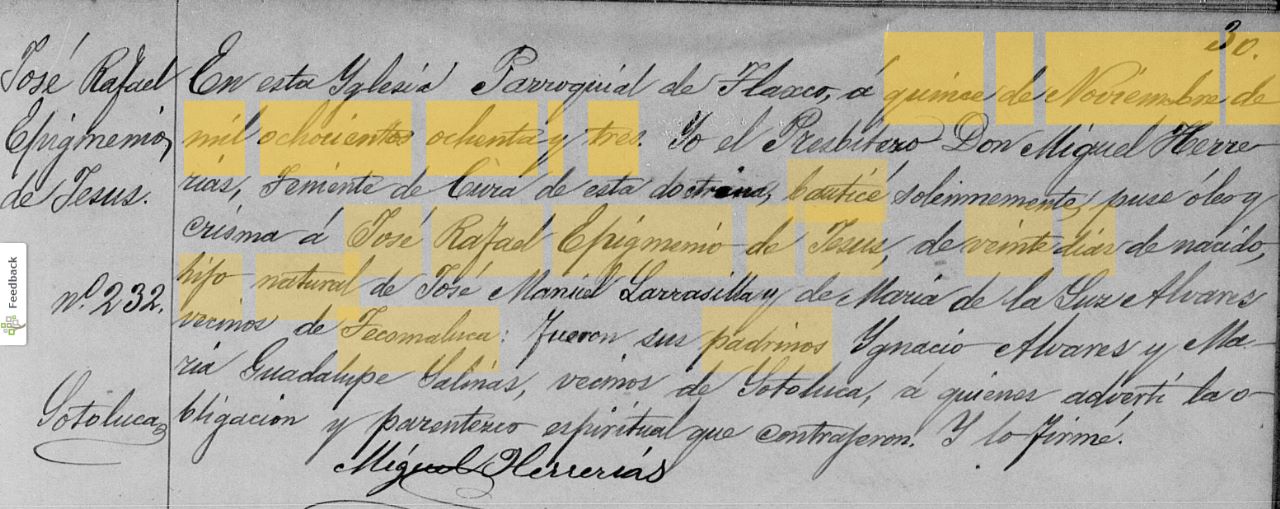 30.
José Rafael
Epigmenio
de Jesus.
nº 232.
Sotoluca
En esta Yglesia Parroquial de Tlaxco, á quince de Noviembre de
mil ochocientos ochenta y tres. Yo el Presbitero Don Miguel Herre-
rias, Teniente de Cura de esta doctrina, bauticé solemnemente, puse óleo y
crisma á José Rafael Epigmenio de Jesus, de veinte dias de nacido,
hijo natural de José Manuel Larrasilla y de Maria de la Luz Alvares
vecinos de Tecomaluca: Fueron sus padrinos Ygnacio Alvares y Ma-
ria Guadalupe Salinas, vecinos de Sotoluca, á quienes advertí la o-
bligacion y parentezco espiritual que contrajeron. Y lo firmé.
Miguel Herrerías
Feedback